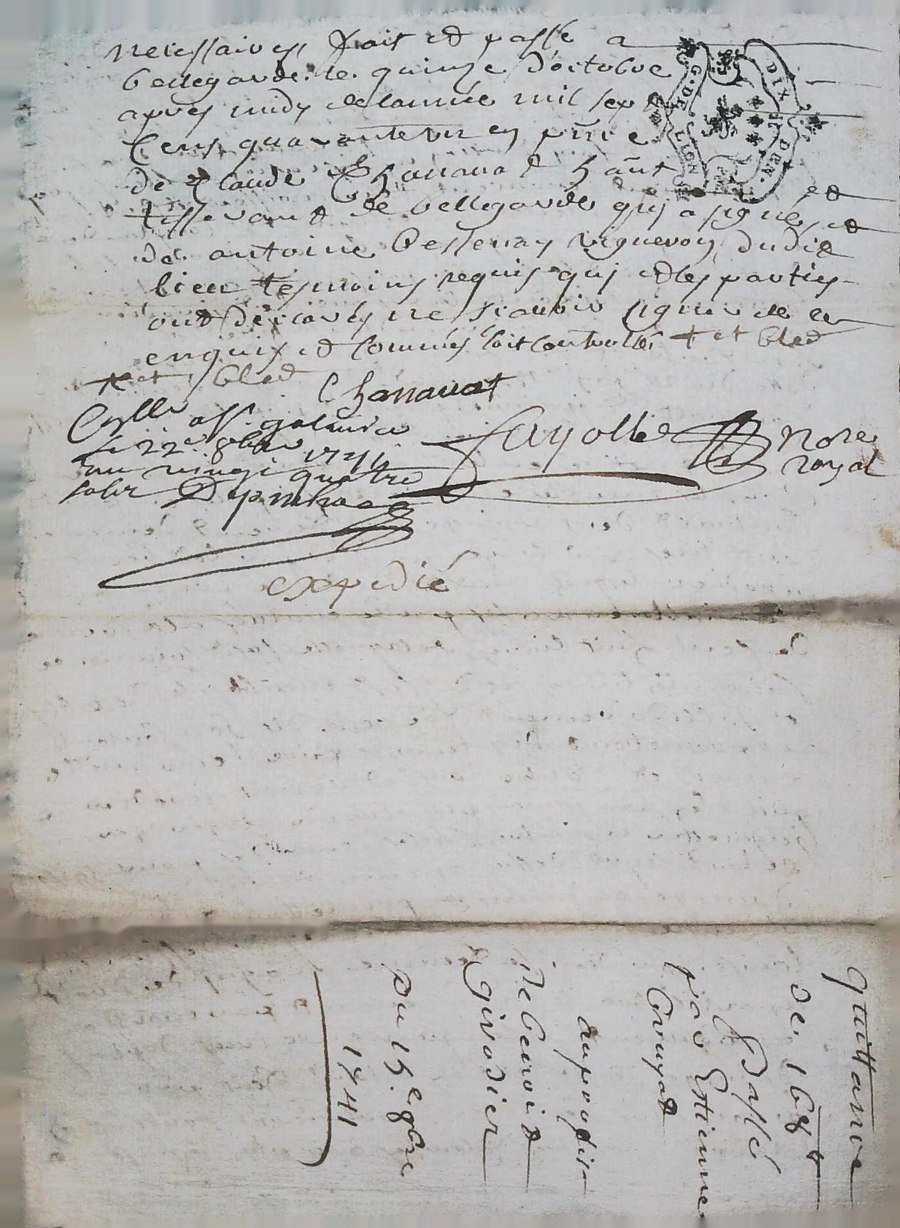 necessaires fait et passé a
bellegarde le quinze d'octobre
apres midy de lannée mil sept
Cens quarante un en pñce
de Claude Chanavat hañt
tisserand de bellegarde qui a signé et
de antoine vigneron dudit
lieu tesmoins requis qui et les parties
ont declarés ne scavoir signer de ce
enquis et sommés soit controllés + et Glad
+ et Glad
Chanavat
Cellé a St galmier
le 22e 8bre 1741
vingt quatre
solz
Fayolle Nore
royal
expedié
G. DE LION
DIX DEN.
quittance
de 168 ₶
Passé
par Estienne
au proffit
de Benoit
girodier
Du 15e 8bre
1741